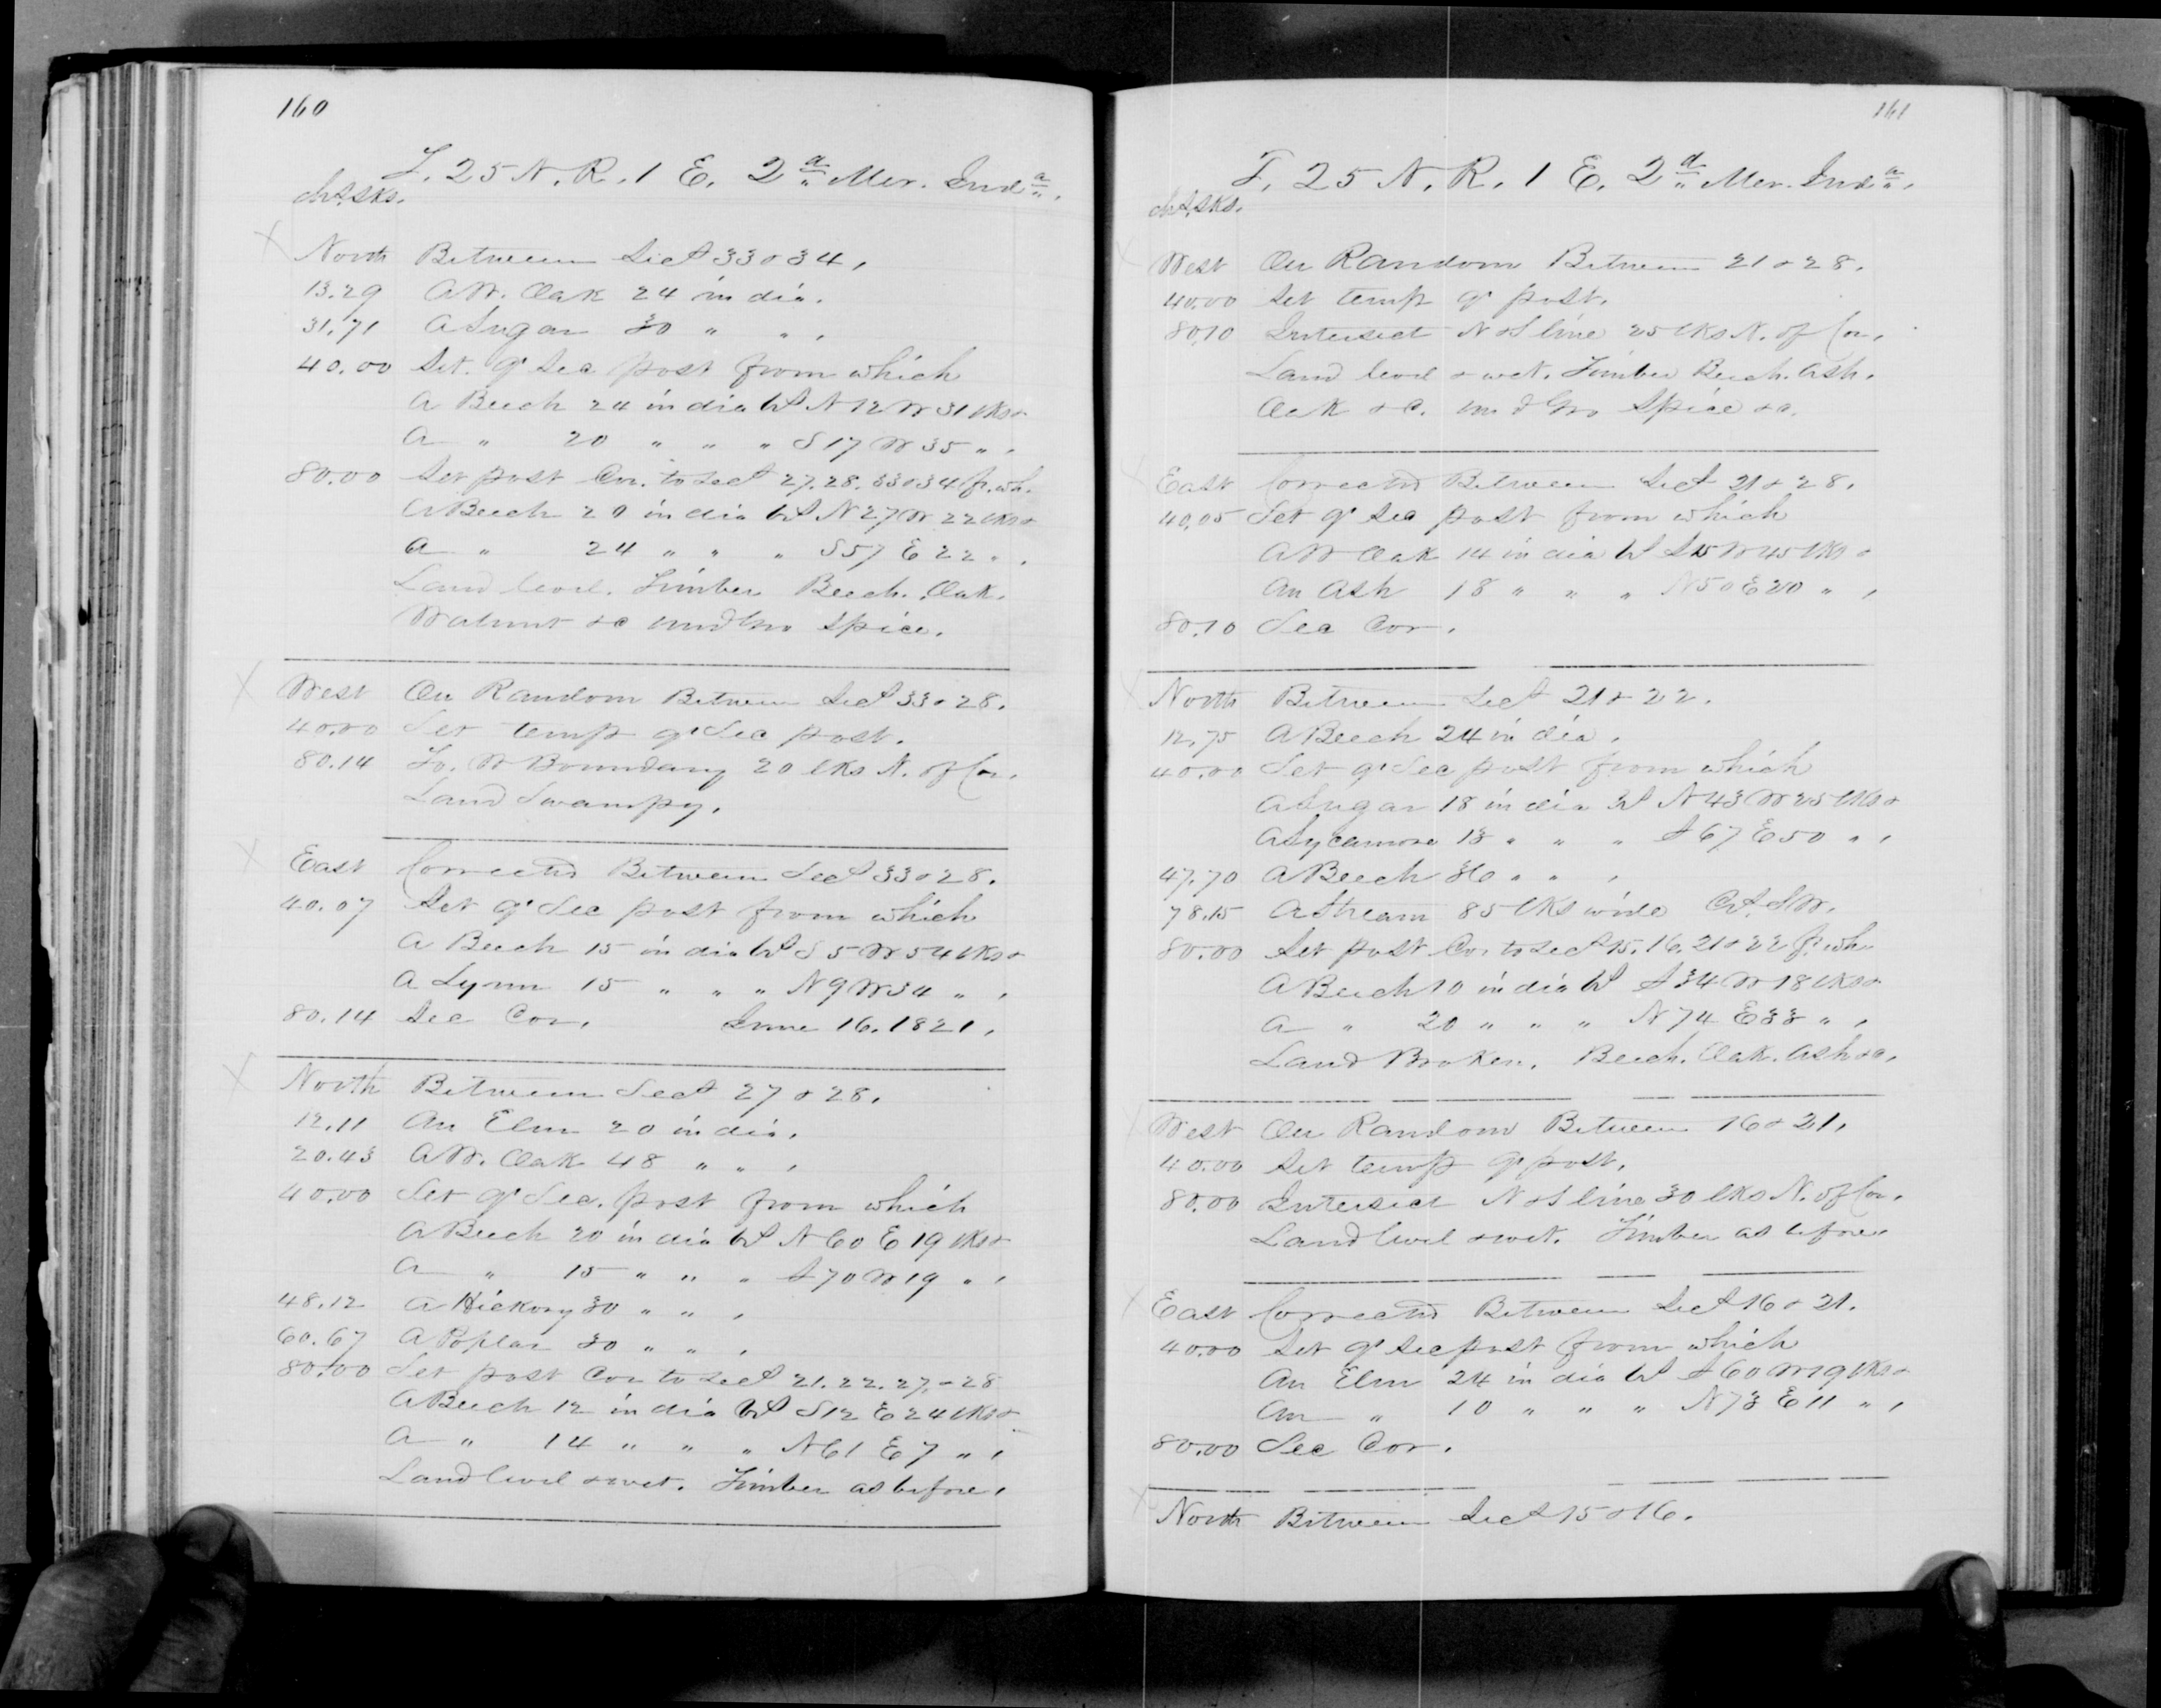 160
T. 25 N. R. 1 E. 2d Mer. Inda.
chs. lks.
North Between Sects 33 & 34.
13.29 A W. Oak 24 in dia.
31.71 A Sugar 30 " " .
40.00 Set qr Sec post from which
A Beech 24 in dia bs N 12 W 31 lks &
A " 20 " " " S 17 W 35 " .
80.00 Set post Cor. to Sects 27. 28. 33 & 34 fr. wh.
A Beech 20 in dia bs N 27 W 22 lks &
A " 24 " " " S 57 E 22 " .
Land level. Timber Beech. Oak.
Walnut &c undgro Spice.
West On Random Between Sects 33 & 28.
40.00 Set temp qr Sec post.
80.14 To. W Boundary 20 lks N. of Cor.
Land Swampy.
East Corrected Between Sects 33 & 28.
40.07 Set qr Sec post from which
A Beech 15 in dia bs S 5 W 54 lks &
A Lynn 15 " " " N 9 W 34 " .
80.14 Sec Cor. June 16. 1821.
North Between Sects 27 & 28.
12.11 An Elm 20 in dia.
20.43 A W. Oak 48 " " .
40.00 Set qr Sec. post from which
A Beech 20 in dia bs N 60 E 19 lks &
A " 15 " " " S 70 W 19 " .
48.12 A Hickory 30 " " .
60.67 A Poplar 30 " " .
80.00 Set post Cor to Sects 21. 22. 27. & 28
A Beech 12 in dia bs S 12 E 24 lks &
A " 14 " " " N 61 E 7 " .
Land level & wet. Timber as before.
161
T. 25 N. R. 1 E. 2d Mer. Inda.
chs. lks.
West On Random Between 21 & 28.
40.00 Set temp qr post.
80.10 Intersect N & S line 25 lks N. of Cor.
Land level & wet. Timber Beech. Ash.
Oak &c. undgro Spice &c.
East Corrected Between Sects 21 & 28.
40.05 Set qr Sec post from which
A W Oak 14 in dia bs S 15 W 45 lks &
An Ash 18 " " " N 50 E 20 " .
80.10 Sec Cor.
North Between Sects 21 & 22.
12.75 A Beech 24 in dia.
40.00 Set qr Sec post from which
A Sugar 18 in dia bs N 43 W 25 lks &
A Sycamore 18 " " " S 67 E 50 " .
47.70 A Beech 36 " " .
78.15 A Stream 85 lks wide Cs. S W.
80.00 Set post Cor to Sects 15. 16. 21 & 22 fr. wh
A Beech 10 in dia bs S 34 W 18 lks &
A " 20 " " " N 74 E 33 " .
Land Broken. Beech. Oak. Ash &c.
West On Random Between 16 & 21.
40.00 Set temp qr post.
80.00 Intersect N & S line 30 lks N. of Cor.
Land level & wet. Timber as before.
East Corrected Between Sects 16 & 21.
40.00 Set qr Sec post from which
An Elm 24 in dia bs S 60 W 19 lks &
An " 10 " " " N 73 E 11 " .
80.00 Sec Cor.
North Between Sects 15 & 16.